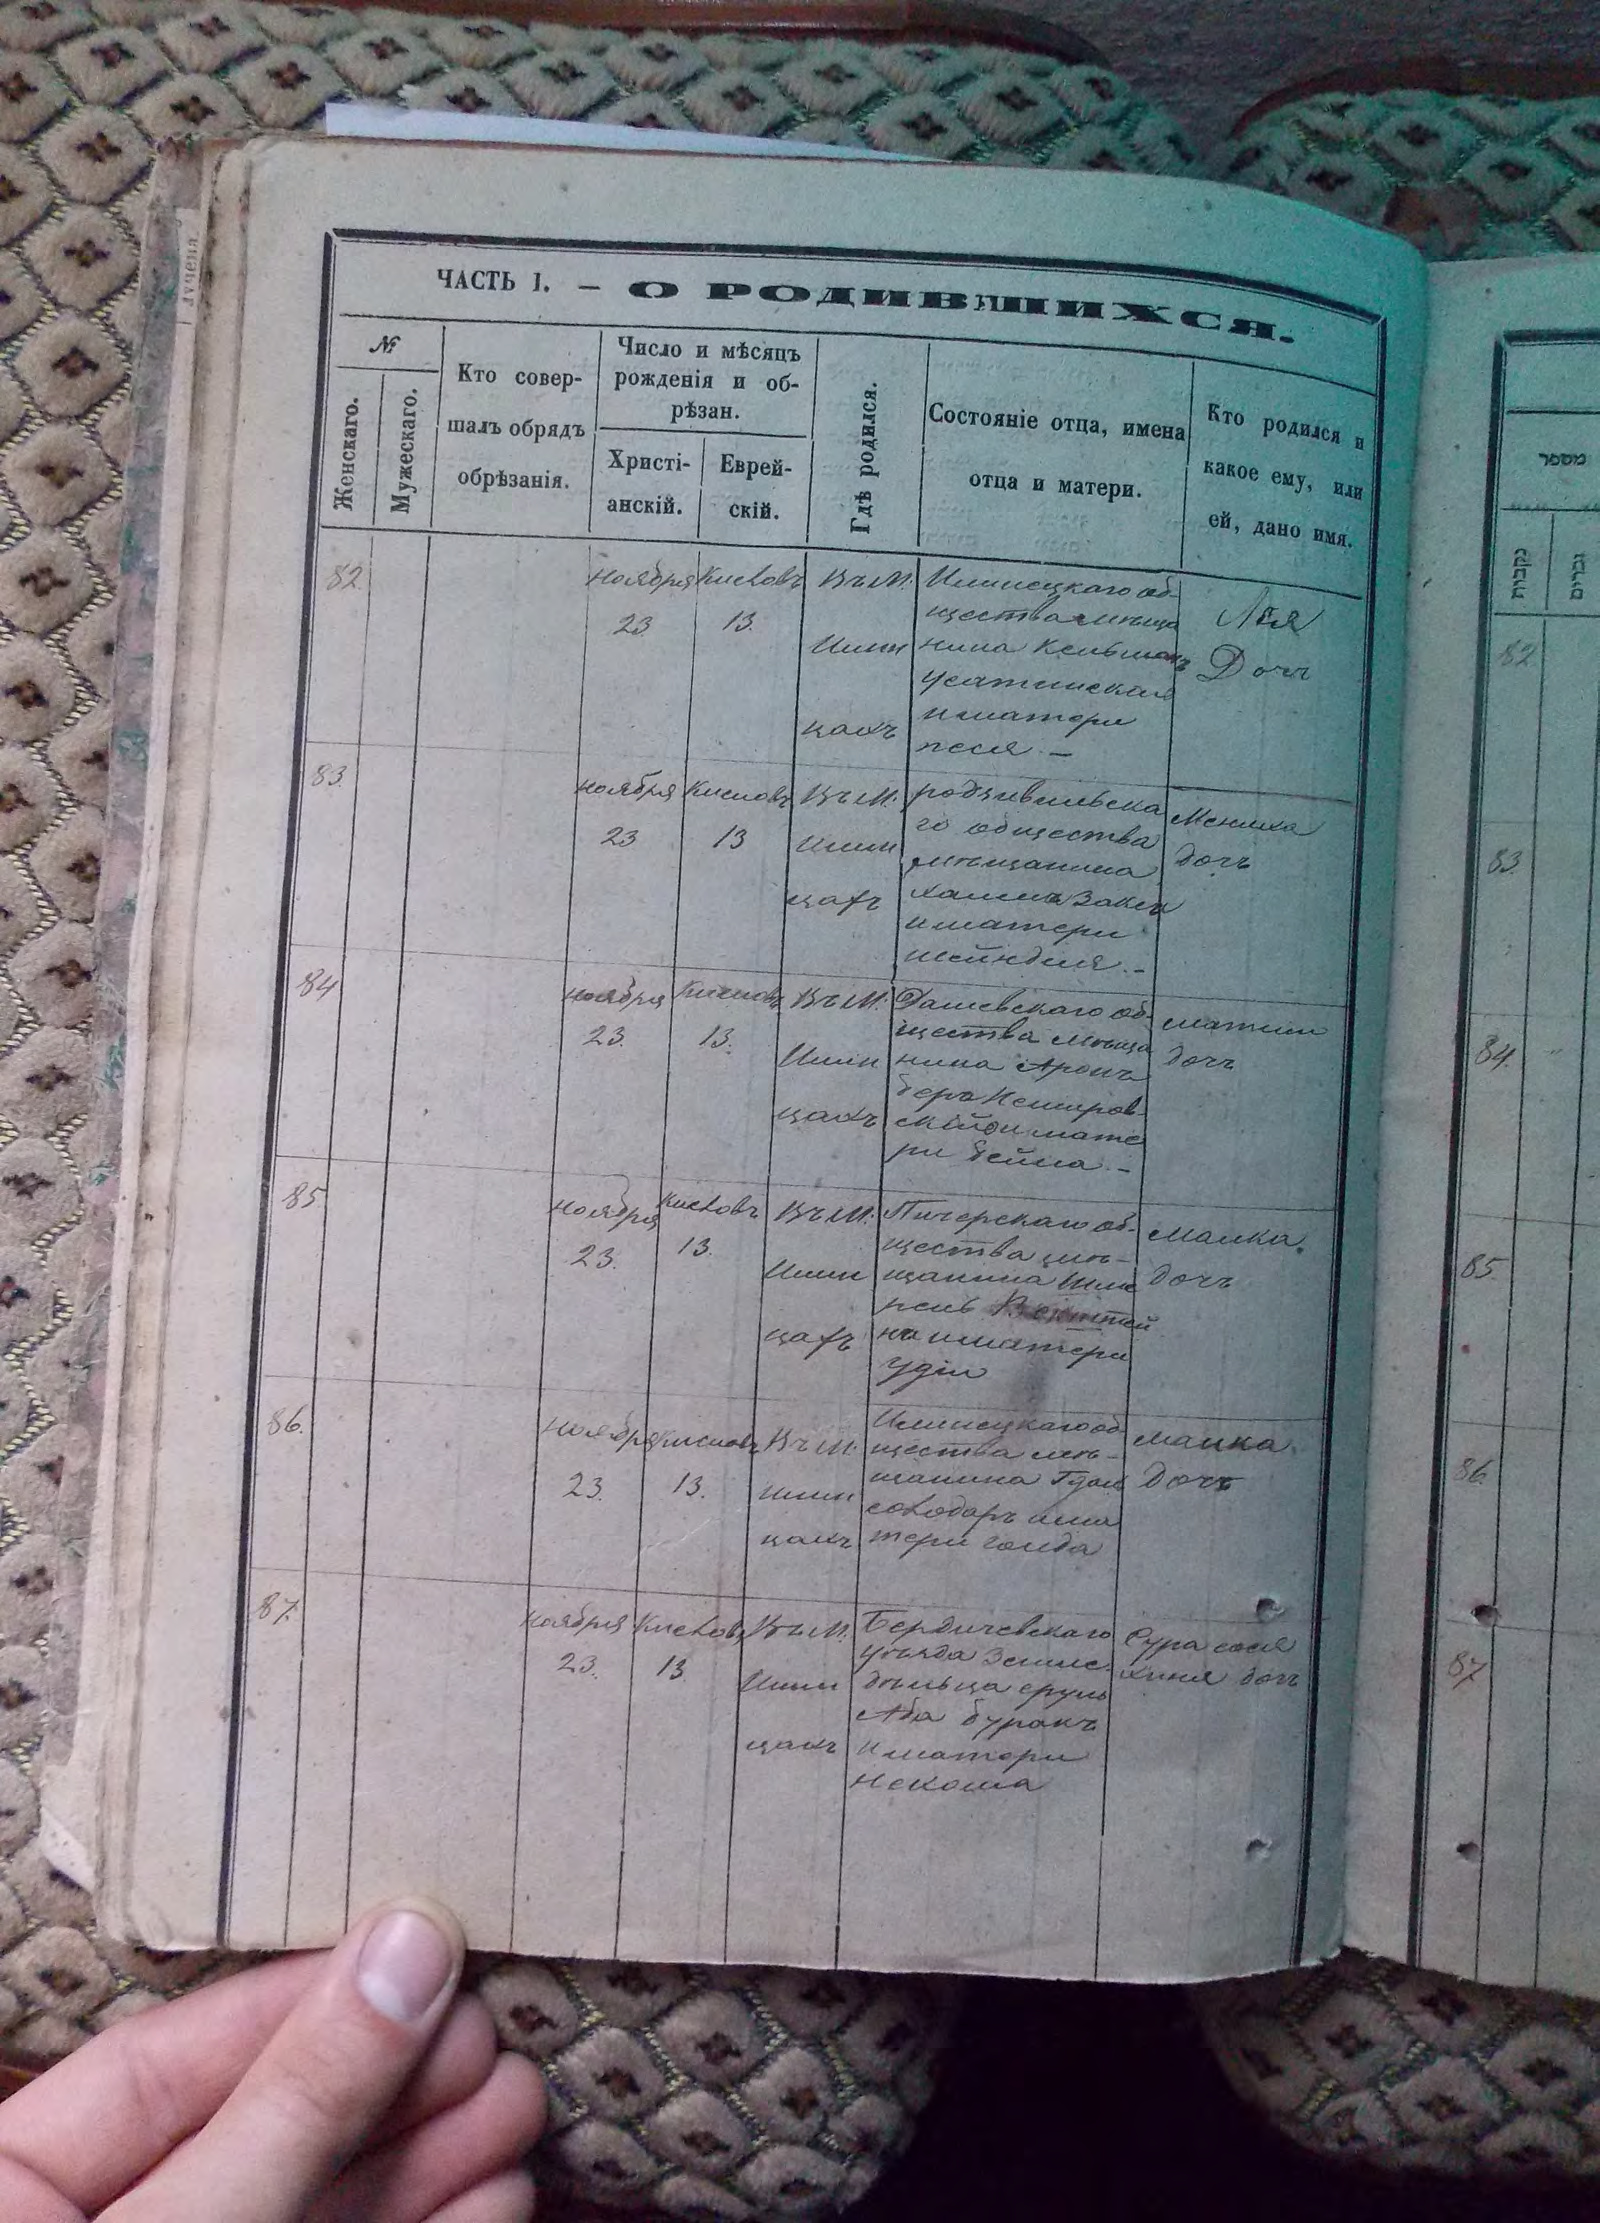 лученя
ЧАСТЬ I. — О РОДИВШИХСЯ.
№
Женскаго.
Мужескаго.
Кто совер-
шалъ обрядъ
обрѣзанія.
Число и мѣсяцъ
рожденія и об-
рѣзан.
Христі-
анскій.
Еврей-
скій.
Гдѣ родился.
Состояніе отца, имена
отца и матери.
Кто родился и
какое ему, или
ей, дано имя.
82
ноября
23
Кисловъ
13.
Въ М.
Илин
цахъ
Илинецкаго об-
щества мѣща
нина
и матери
песя —
Лея
Дочь
83.
ноября
23
Кисловъ
13
Въ М.
Илин
цахъ
родзивильска
го общества
мѣщанина
хаима Заксъ
и матери
шейндля. —
Мениха
дочь
84
ноября
23.
Кисловъ
13.
Въ М.
Илин
цахъ
Дашевскаго об-
щества мѣща
нина Аронъ
беръ Немиров-
скій и мате
ри бейла. —
дочь
85
ноября
23.
Кисловъ
13.
Въ М.
Илин
цахъ
Пичерскаго об-
щества мѣ-
щанина
на и матери
удіи
Малка.
дочь
86.
ноября
23.
Кисловъ
13.
Въ М.
Илин
цахъ
Илинецкаго об
щества мѣ-
щанина
соводаръ и ма
тери голда
Малка
Дочь
87.
ноября
23.
Кисловъ
13
Въ М.
Илин
цахъ
Бердичевскаго
уѣзда Земле-
дѣльца сруль
Аба буракъ
и матери
Сура
дочь
מספר
נקבות
זכרים
82
83.
84.
85.
86.
87